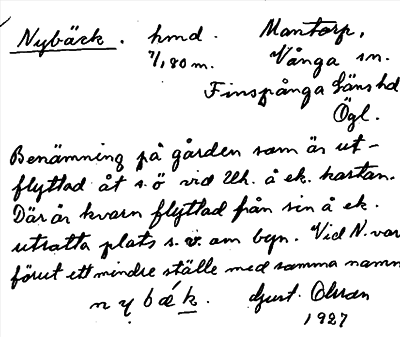 Nybäck. hmd. Mantorp,
7/1,80 m. Vånga sn.
Finspånga Läns hd
Ögl.
Benämning på gården som är ut-
flyttad åt s.ö vid Uh. å ek. kartan.
Där är kvarn flyttad från sin å ek.
utsatta plats s.v. om byn. Vid N. var
förut ett mindre ställe med samma namn
nybäk. Gust. Olsson
1927